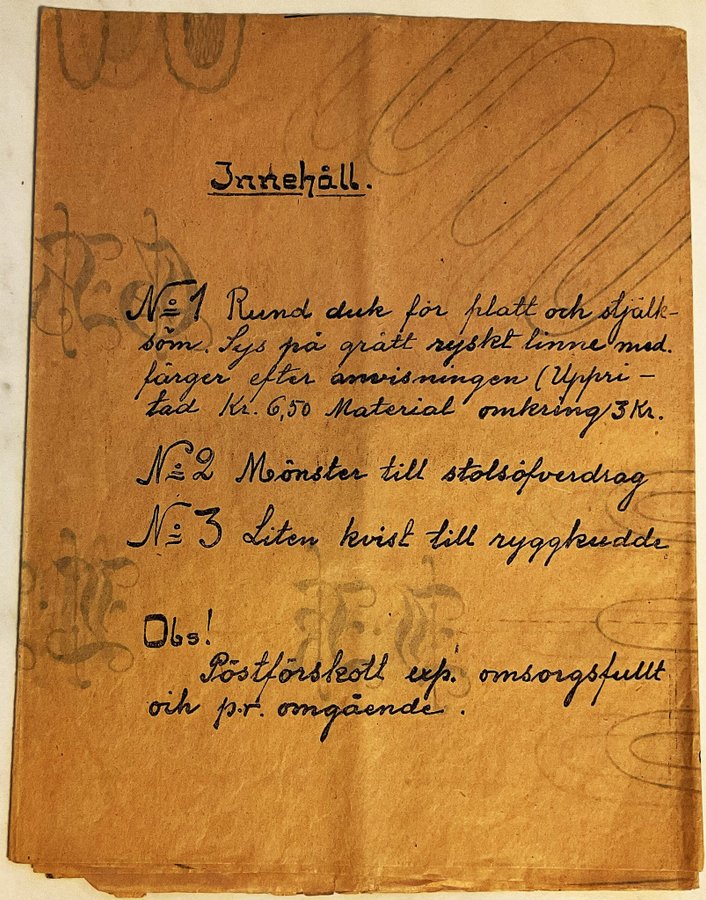 Innehåll.
No 1 Rund duk för platt och stjälk-
söm. Sys på grått ryskt linne med.
färger efter anvisningen (Uppri-
tad Kr. 6,50 Material omkring 3 Kr.
No 2 Mönster till stolsöfverdrag
No 3 Liten kvist till ryggkudde
Obs!
Pöstförskött exp. omsorgsfullt
och p.r. omgående.